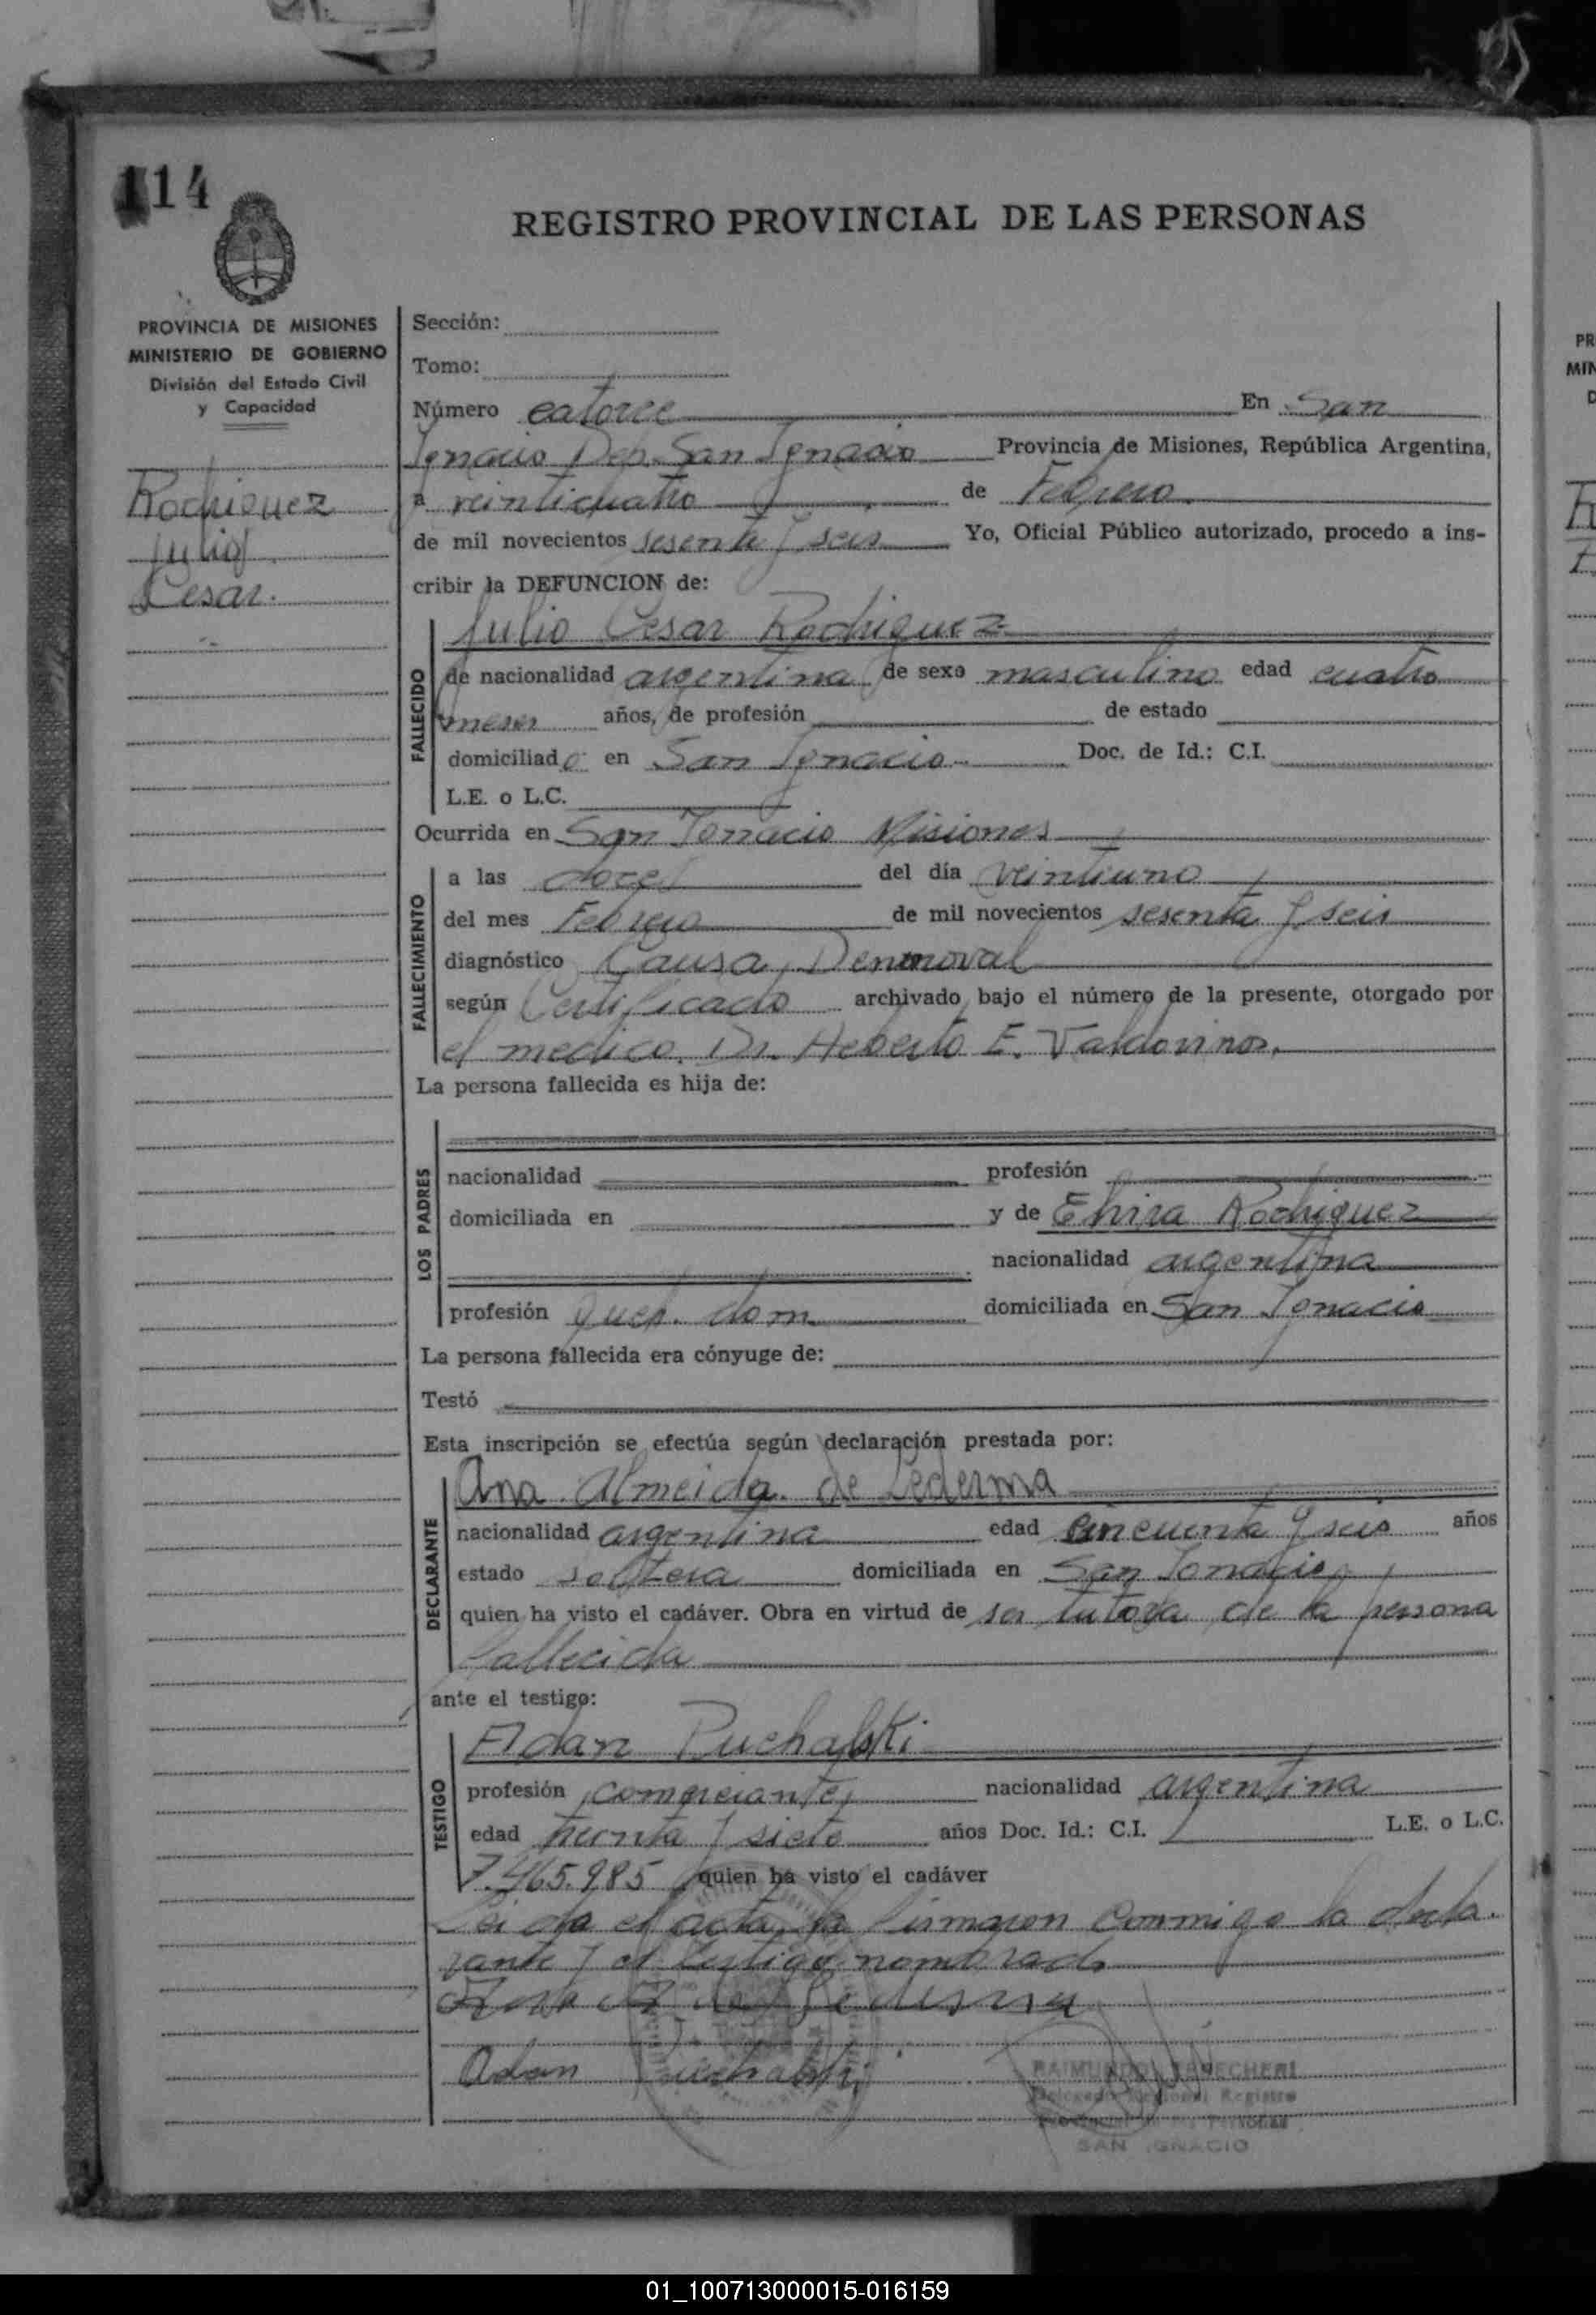 114
REGISTRO PROVINCIAL DE LAS PERSONAS
PROVINCIA DE MISIONES
MINISTERIO DE GOBIERNO
División del Estado Civil
y Capacidad
Rodriguez
Julio
Cesar.
Sección:
Tomo:
Número catorce En San
Ignacio Dep. San Ignacio Provincia de Misiones, República Argentina,
a veinticuatro de Febrero
de mil novecientos sesenta y seis Yo, Oficial Público autorizado, procedo a ins-
cribir la DEFUNCION de:
Julio Cesar Rodriguez
FALLECIDO
de nacionalidad argentina de sexo masculino edad cuatro
meses años, de profesión de estado
domiciliado en San Ignacio Doc. de Id.: C.I.
L.E. o L.C.
Ocurrida en San Ignacio Misiones
FALLECIMIENTO
a las doce del día veintiuno
del mes Febrero de mil novecientos sesenta y seis
diagnóstico Causa
según Certificado archivado bajo el número de la presente, otorgado por
el medico. Dr. Heberto E. Valdovinos.
La persona fallecida es hija de:
LOS PADRES
nacionalidad profesión
domiciliada en y de Elvira Rodriguez
nacionalidad argentina
profesión Queh. dom domiciliada en San Ignacio
La persona fallecida era cónyuge de:
Testó
Esta inscripción se efectúa según declaración prestada por:
DECLARANTE
Ana Almeida de Ledesma
nacionalidad argentina edad cincuenta y seis años
estado soltera domiciliada en San Ignacio
quien ha visto el cadáver. Obra en virtud de ser tutora de la persona
fallecida
ante el testigo:
TESTIGO
Adan Puchalski
profesión comerciante nacionalidad argentina
edad treinta y siete años Doc. Id.: C.I. L.E. o L.C.
7.465.985 quien ha visto el cadáver
Leida el acta, la firmaron conmigo la decla-
rante y el testigo nombrado
de Ledesma
Adan Puchalski
RAIMUNDO
Delegado Registro
Personas
SAN IGNACIO
PR
MIN
D
01_100713000015-016159